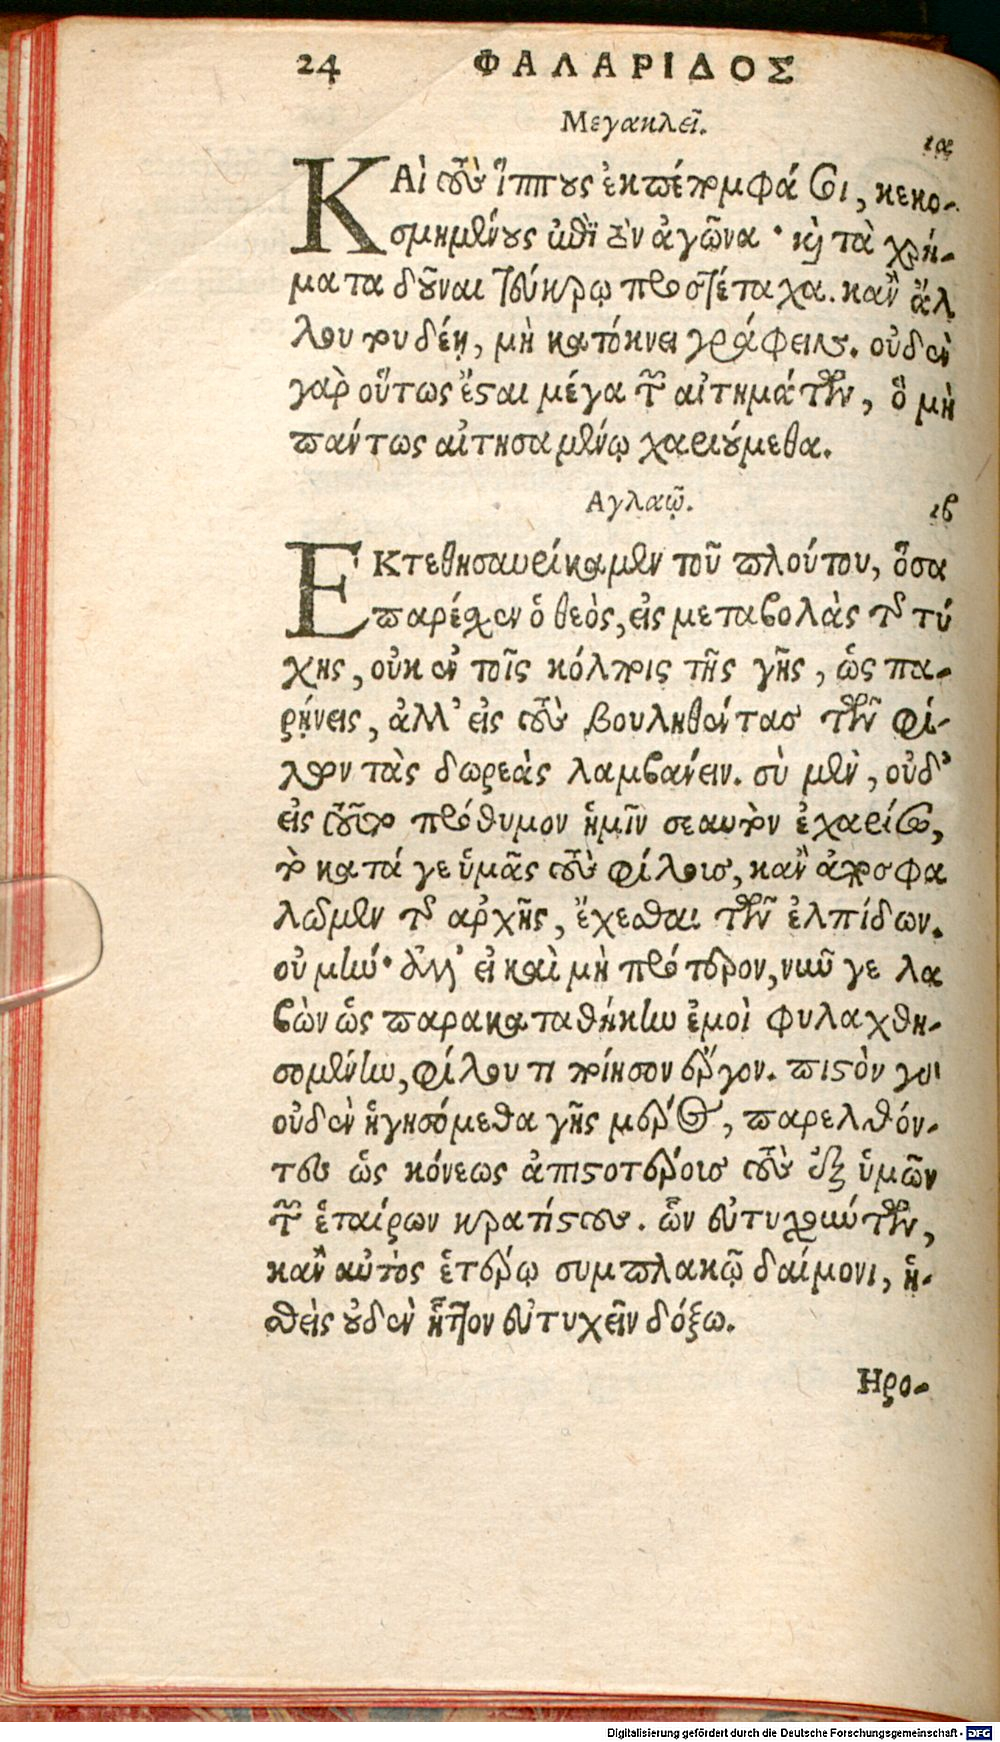 24 ΦΑΛΑΡΙΔΟΣ
Μεγακλεῖ.
ια
ΚΑὶ τοὺς ἵππους ἐκπεπόμφασι, κεκο-
σμημένους ἐπὶ τὸν ἀγῶνα· καὶ τὰ χρή-
ματα δοῦναι Τεύκρῳ προστέταχα. κἂν ἄλ
λου του δέῃ, μὴ κατόκνει γράφειν. οὐδὲν
γὰρ οὕτως ἔσται μέγα τῶν αἰτημάτων, ὃ μὴ
πάντως αἰτησαμένῳ χαριούμεθα.
Αγλαῷ.
ιβ
ΕΚτεθησαυρίκαμεν τοῦ πλούτου, ὅσα
παρέσχεν ὁ θεὸς, εἰς μεταβολὰς τῆς τύ
χης, οὐκ ἐν τοῖς κόλποις τῆς γῆς, ὡς πα-
ρῄνεις, ἀλλ' εἰς τοὺς βουληθέντας τῶν φί-
λων τὰς δωρεὰς λαμβάνειν. σὺ μὲν, οὐδ'
εἰς τοῦτο πρόθυμον ἡμῖν σεαυτὸν ἐχαρίσω,
τὸ κατά γε ὑμᾶς τοὺς φίλους, κἂν ἀποσφα
λῶμεν τῆς ἀρχῆς, ἔχεσθαι τῶν ἐλπίδων.
οὐ μὴν· ἀλλ' εἰ καὶ μὴ πρότερον, νῦν γε λα
βὼν ὡς παρακαταθήκην ἐμοὶ φυλαχθη-
σομένην, φίλου τι ποίησον ἔργον. πιστὸν γὰρ
οὐδὲν ἡγησόμεθα γῆς μέρος, παρελθόν-
τες ὡς κόνεως ἀπιστοτέρους τοὺς ἐξ ὑμῶν
τῶν ἑταίρων κρατίστους. ὧν εὐτυχούντων,
κἂν αὐτὸς ἑτέρῳ συμπλακῶ δαίμονι, ἡ-
σθεὶς οὐδὲν ἧττον εὐτυχεῖν δόξω.
Ηρο-
Digitalisierung gefördert durch die Deutsche Forschungsgemeinschaft - DFG